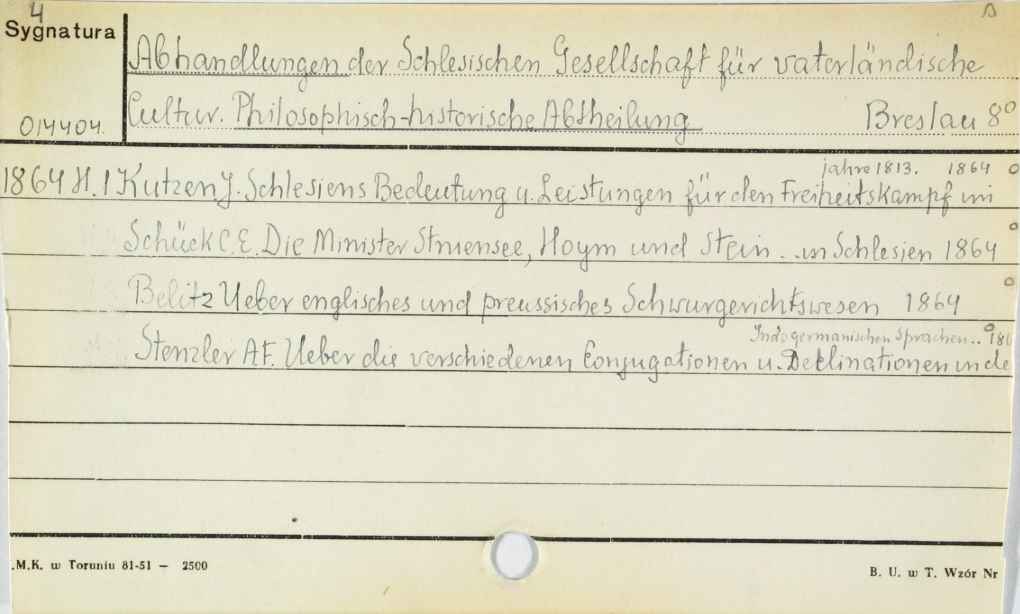 4
Sygnatura
Abhandlungen der Schlesischen Gesellschaft für vaterländische
Cultur. Philosophisch-historische Abtheilung Breslau 8°
014404.
jahre 1813. 1864
1864 H. 1 Kutzen J. Schlesiens Bedeutung u. Leistungen für den Freiheitskampf im
Schück C.E. Die Minister Struensee, Hoym und Stein .. in Schlesien 1864
Belitz Ueber englisches und preussisches Schwurgerichtswesen 1864
Indogermanischen Sprachen.. 186
Stenzler A.F. Ueber die verschiedenen Conjugationen u. Deklinationen in de
.M.K. w Toruniu 81-51 — 2500
B. U. w T. Wzór Nr